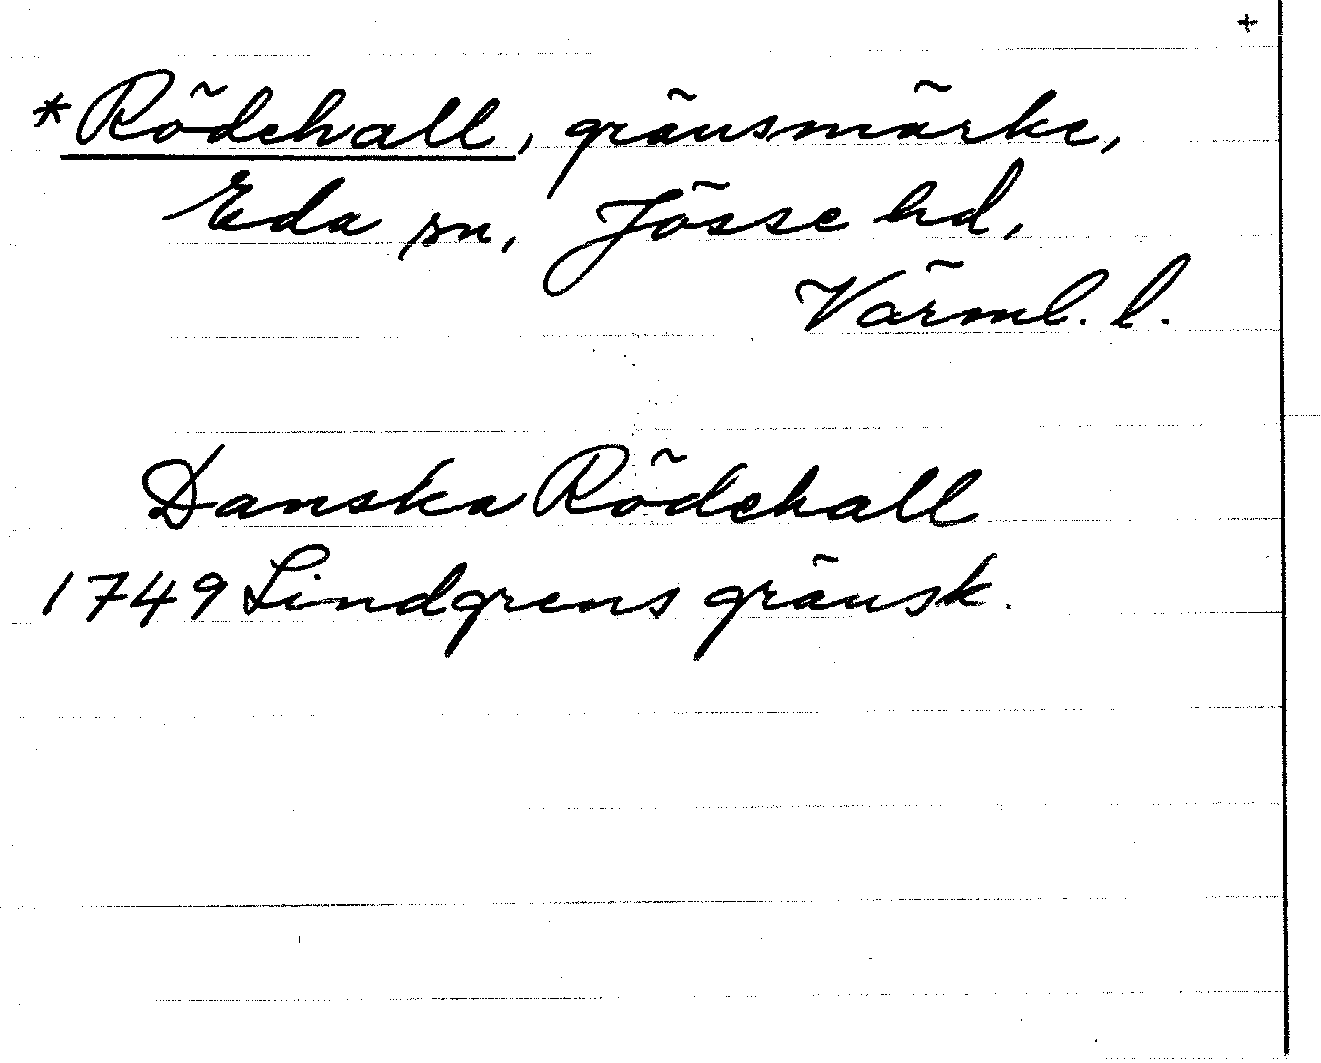 +
*Rödehall, gränsmärke,
Eda sn, Jösse hd,
Värml. l.
Danska Rödehall
1749 Lindgrens gränsk.